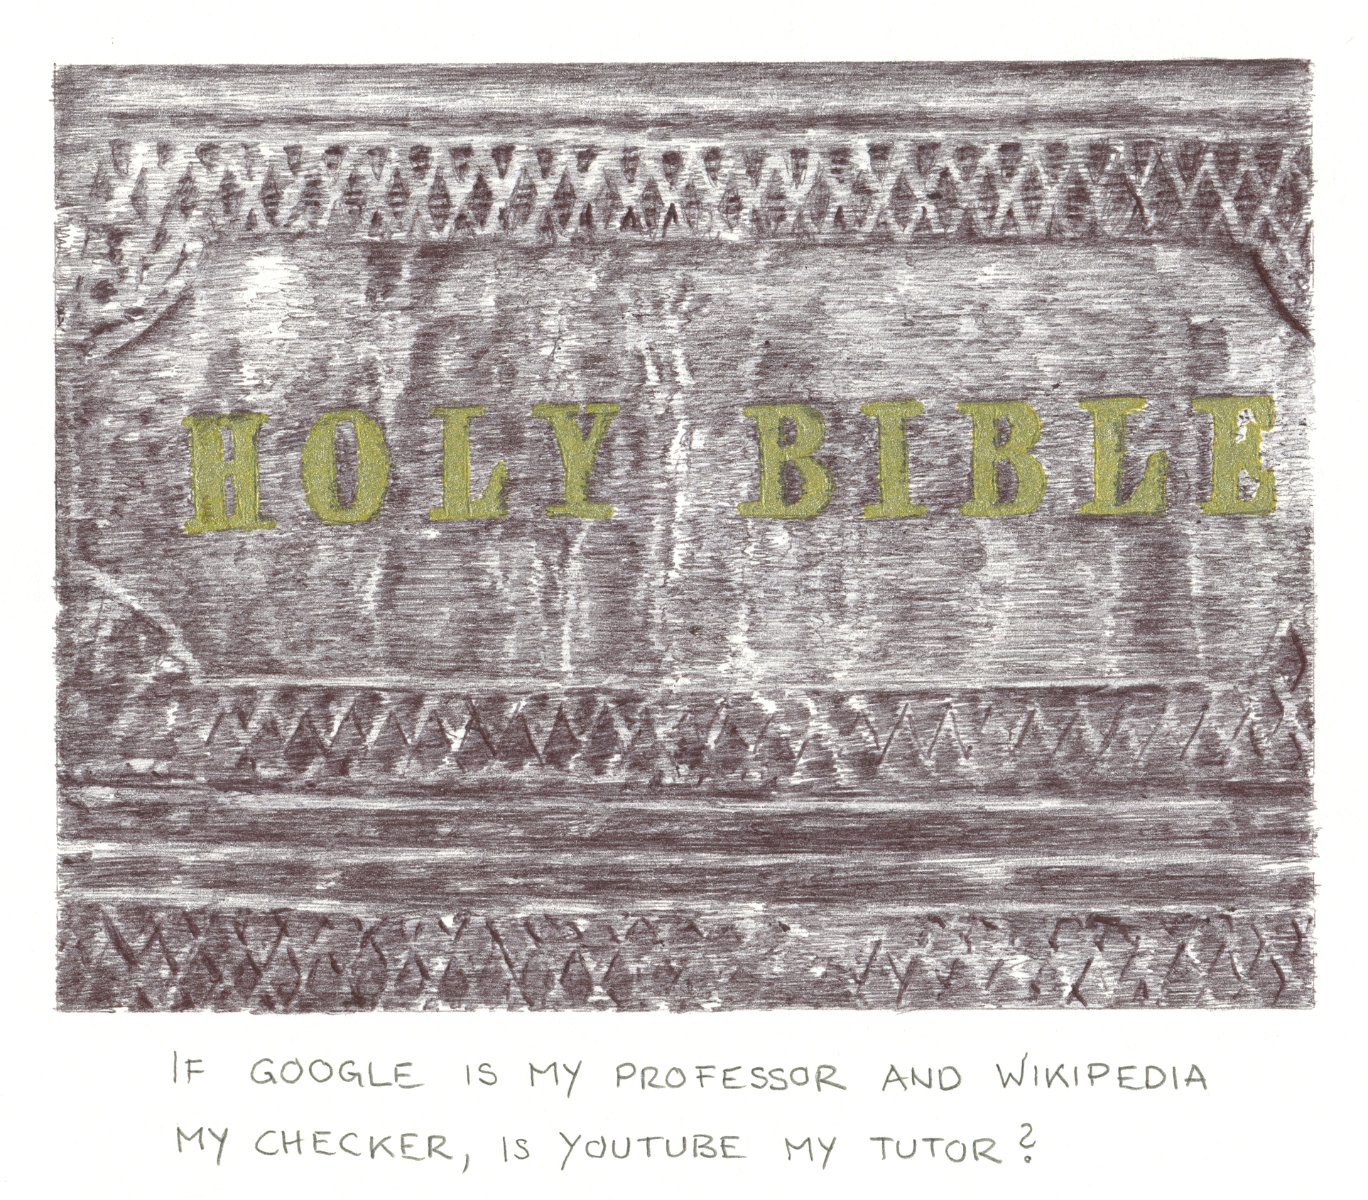 HOLY BIBLE
IF GOOGLE IS MY PROFESSOR AND WIKIPEDIA
MY CHECKER, IS YOUTUBE MY TUTOR?